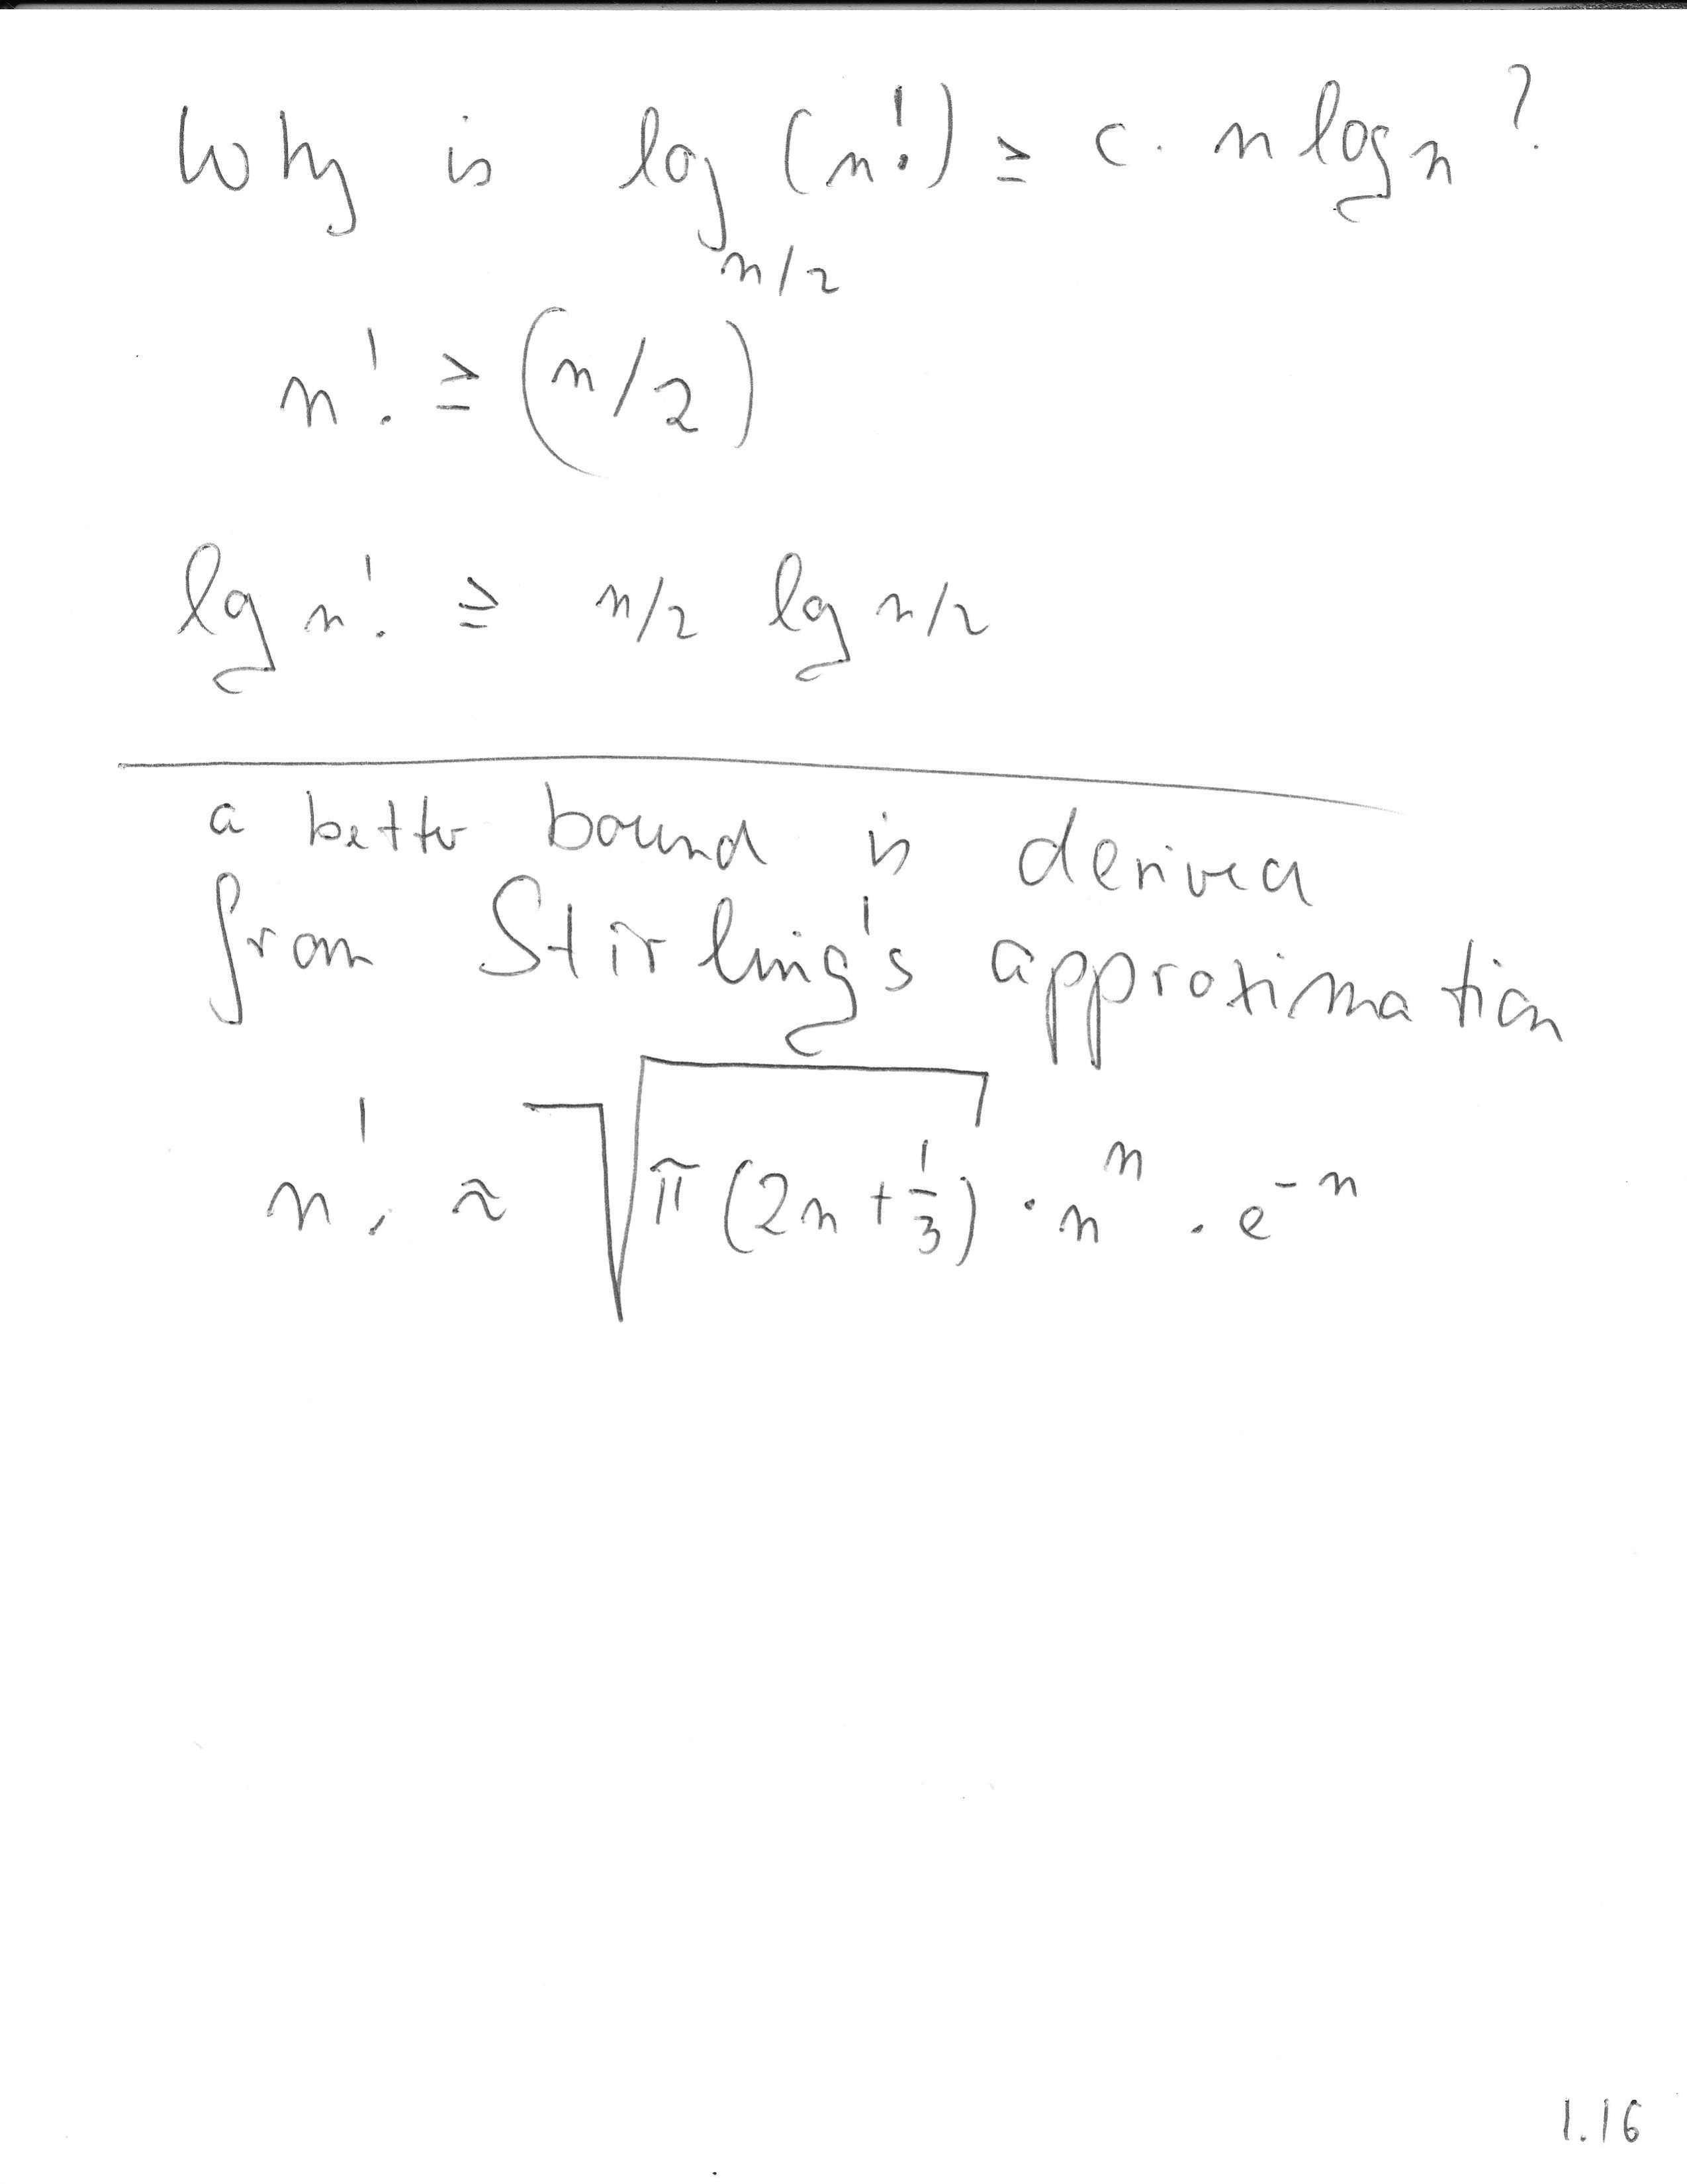 Why is log (n!) ≥ c. n log n?
n! ≥ (n/2)^{n/2}
lg n! ≥ n/2 lg n/2
a better bound is derived
from Stirling's approximation
n! ≈ √(π(2n + 1/3)) · n^n · e^{-n}
1.16